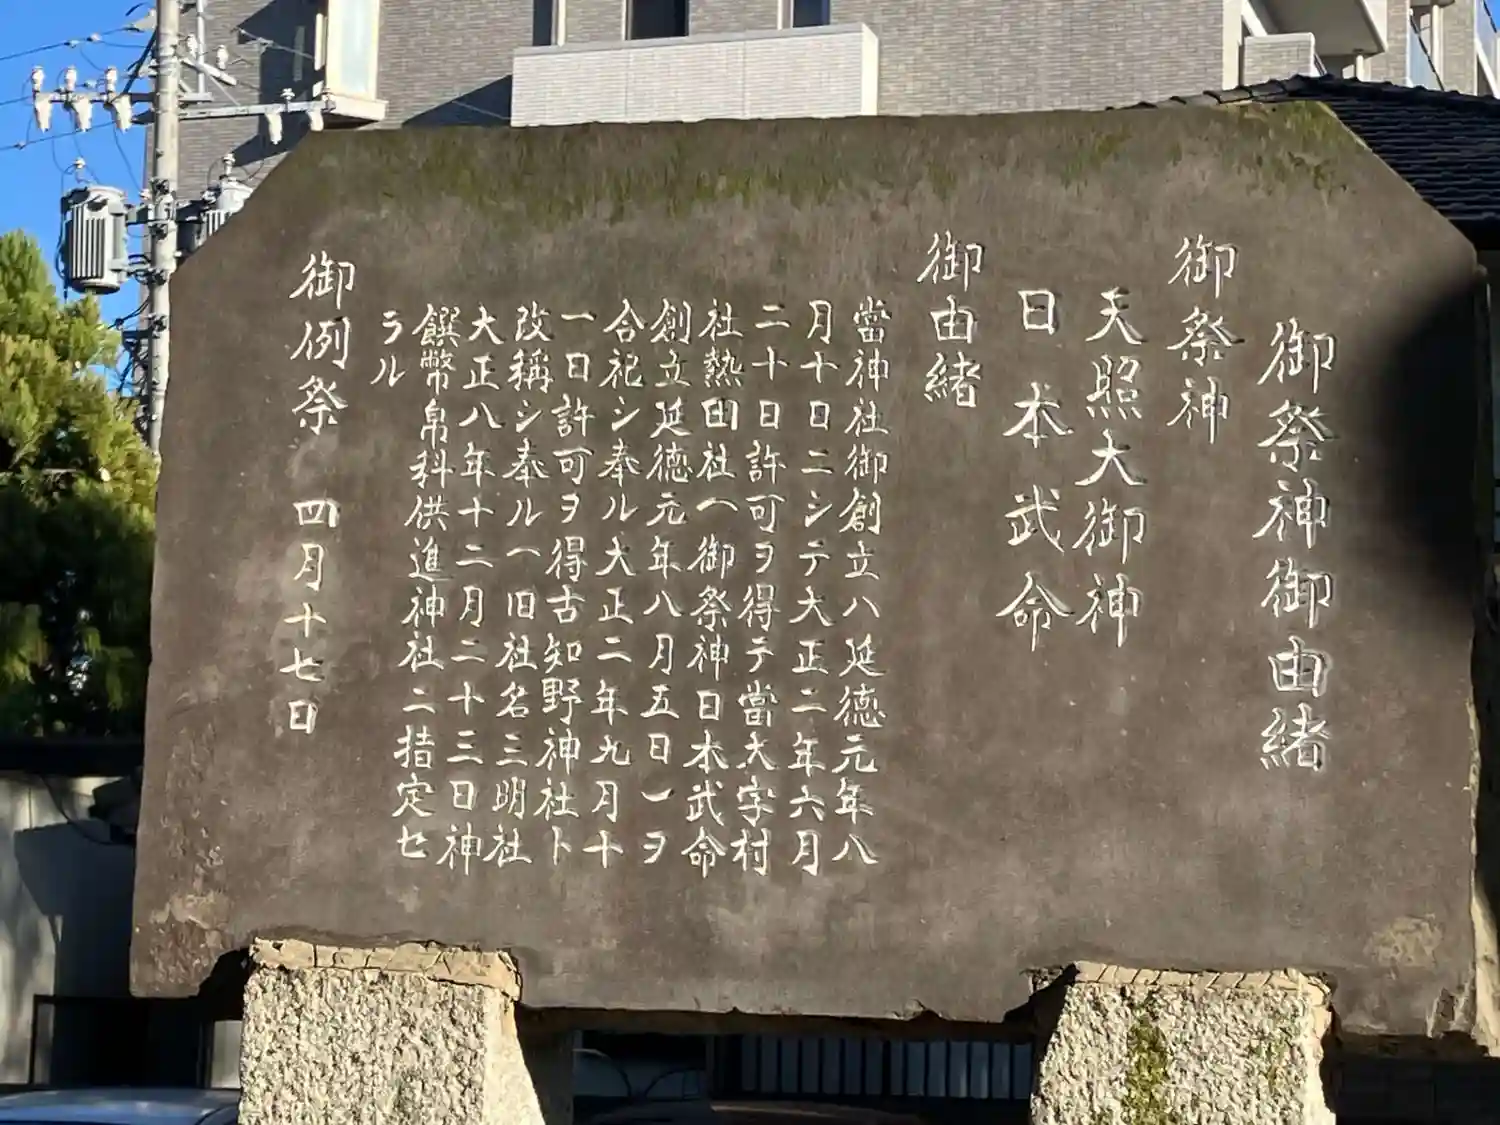 御祭神御由緒
御祭神
天照大御神
日本武命
御由緒
當神社御創立ハ延徳元年八
月十日ニシテ大正二年六月
二十日許可ヲ得テ當大字村
社熱田社ヘ御祭神日本武命
創立延徳元年八月五日ーヲ
合祀シ奉ル大正二年九月十
一日許可ヲ得古知野神社ト
改稱シ奉ル一旧社名三明社
大正八年十二月二十三日神
饌幣帛料供進神社ニ指定セ
ラル
御例祭 四月十七日